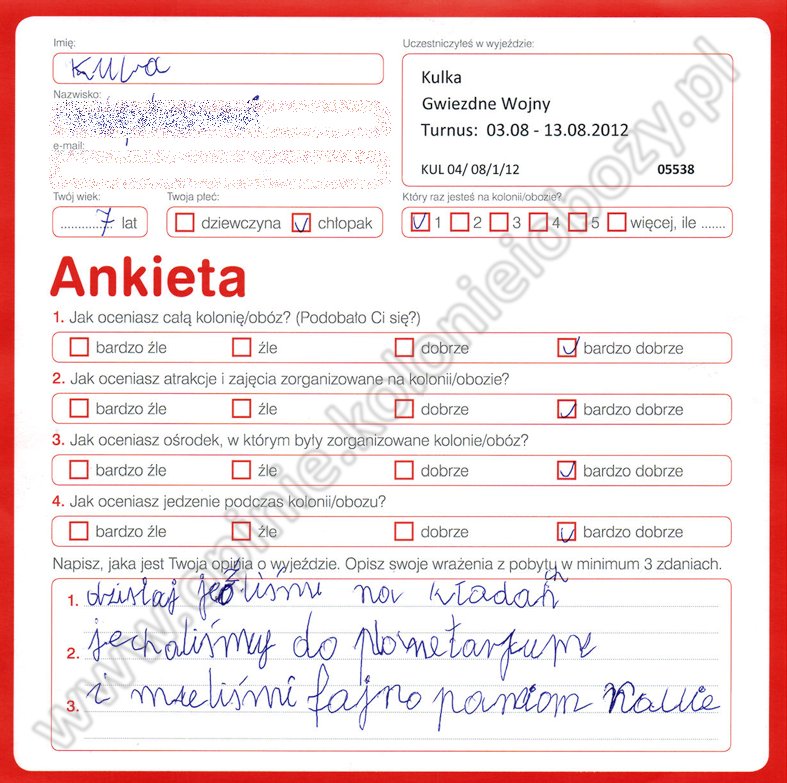 Imię:
Kuba
Nazwisko:
e-mail:
Uczestniczyłeś w wyjeździe:
Kulka
Gwiezdne Wojny
Turnus: 03.08 - 13.08.2012
KUL 04/ 08/1/12 05538
Twój wiek:
7 lat
Twoja płeć:
dziewczyna chłopak
Który raz jesteś na kolonii/obozie?
1 2 3 4 5 więcej, ile .......
Ankieta
1. Jak oceniasz całą kolonię/obóz? (Podobało Ci się?)
bardzo źle źle dobrze bardzo dobrze
2. Jak oceniasz atrakcje i zajęcia zorganizowane na kolonii/obozie?
bardzo źle źle dobrze bardzo dobrze
3. Jak oceniasz ośrodek, w którym były zorganizowane kolonie/obóz?
bardzo źle źle dobrze bardzo dobrze
4. Jak oceniasz jedzenie podczas kolonii/obozu?
bardzo źle źle dobrze bardzo dobrze
Napisz, jaka jest Twoja opinia o wyjeździe. Opisz swoje wrażenia z pobytu w minimum 3 zdaniach.
1. dzisłaj na kładah
2. jechaliśmy do
3. i mieliśmi fajno
www.opinie.kolonieiobozy.pl